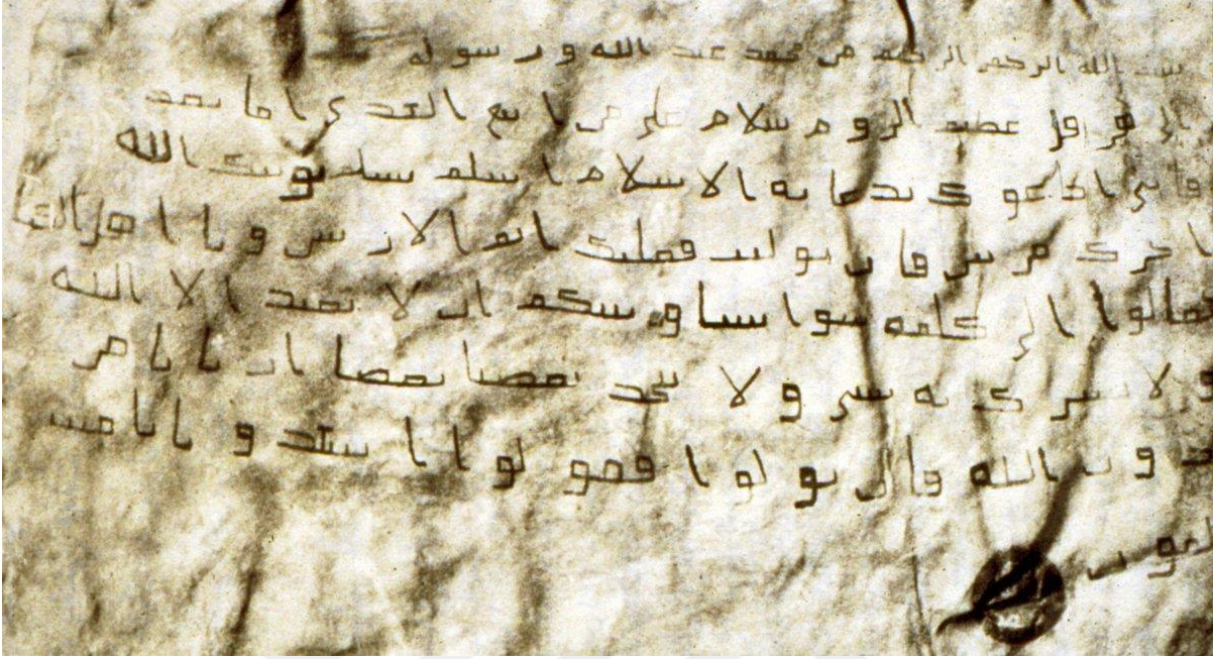 بسم الله الرحمن الرحيم من محمد عبد الله ورسوله
إلى هرقل عظيم الروم سلام على من اتبع الهدى أما بعد
فإني أدعوك بدعاية الإسلام أسلم تسلم يؤتك الله
أجرك مرتين فإن توليت فعليك إثم الأريسيين ويا أهل الكتاب
تعالوا إلى كلمة سواء بيننا وبينكم أن لا نعبد إلا الله
ولا نشرك به شيئا ولا يتخذ بعضنا بعضا أربابا من
دون الله فإن تولوا فقولوا اشهدوا بأنا مسلمون